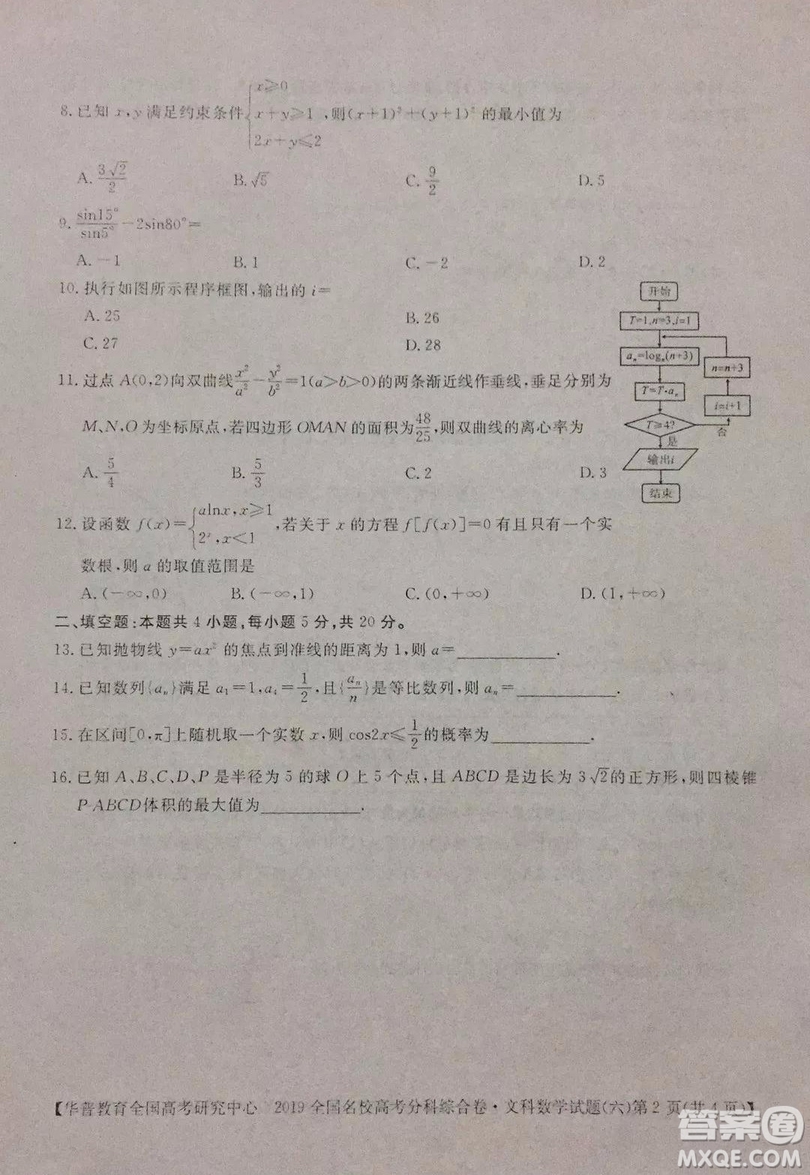 8. 已知 x, y 满足约束条件 { x≥0 x+y≥1 2x+y≤2 , 则(x+1)²+(y+1)² 的最小值为
A. 3√2/2 B. √5 C. 9/2 D. 5
9. sin15°/sin5° −2sin80°=
A. −1 B. 1 C. −2 D. 2
10. 执行如图所示程序框图,输出的 i=
A. 25 B. 26
C. 27 D. 28
开始
T=1,n=3,i=1
aₙ=logₙ(n+3)
n=n+3
T=T·aₙ
i=i+1
T≥4?
是
否
输出i
结束
11. 过点 A(0,2)向双曲线 x²/a² − y²/b² =1(a>b>0)的两条渐近线作垂线,垂足分别为
M、N,O 为坐标原点,若四边形 OMAN 的面积为 48/25 ,则双曲线的离心率为
A. 5/4 B. 5/3 C. 2 D. 3
12. 设函数 f(x)= { alnx, x≥1 2ˣ, x<1 ,若关于 x 的方程 f[f(x)]=0 有且只有一个实
数根,则 a 的取值范围是
A. (−∞,0) B. (−∞,1) C. (0,+∞) D. (1,+∞)
二、填空题:本题共 4 小题,每小题 5 分,共 20 分。
13. 已知抛物线 y=ax² 的焦点到准线的距离为 1,则 a=________.
14. 已知数列{aₙ}满足 a₁=1,a₄= 1/2 ,且{aₙ/n}是等比数列,则 aₙ=________.
15. 在区间[0,π]上随机取一个实数 x,则 cos2x≤ 1/2 的概率为________.
16. 已知 A、B、C、D、P 是半径为 5 的球 O 上 5 个点,且 ABCD 是边长为 3√2的正方形,则四棱锥
P-ABCD体积的最大值为________.
【华普教育全国高考研究中心 2019 全国名校高考分科综合卷·文科数学试题(六)第 2 页(共 4 页)】
答案圈
MXQE.COM